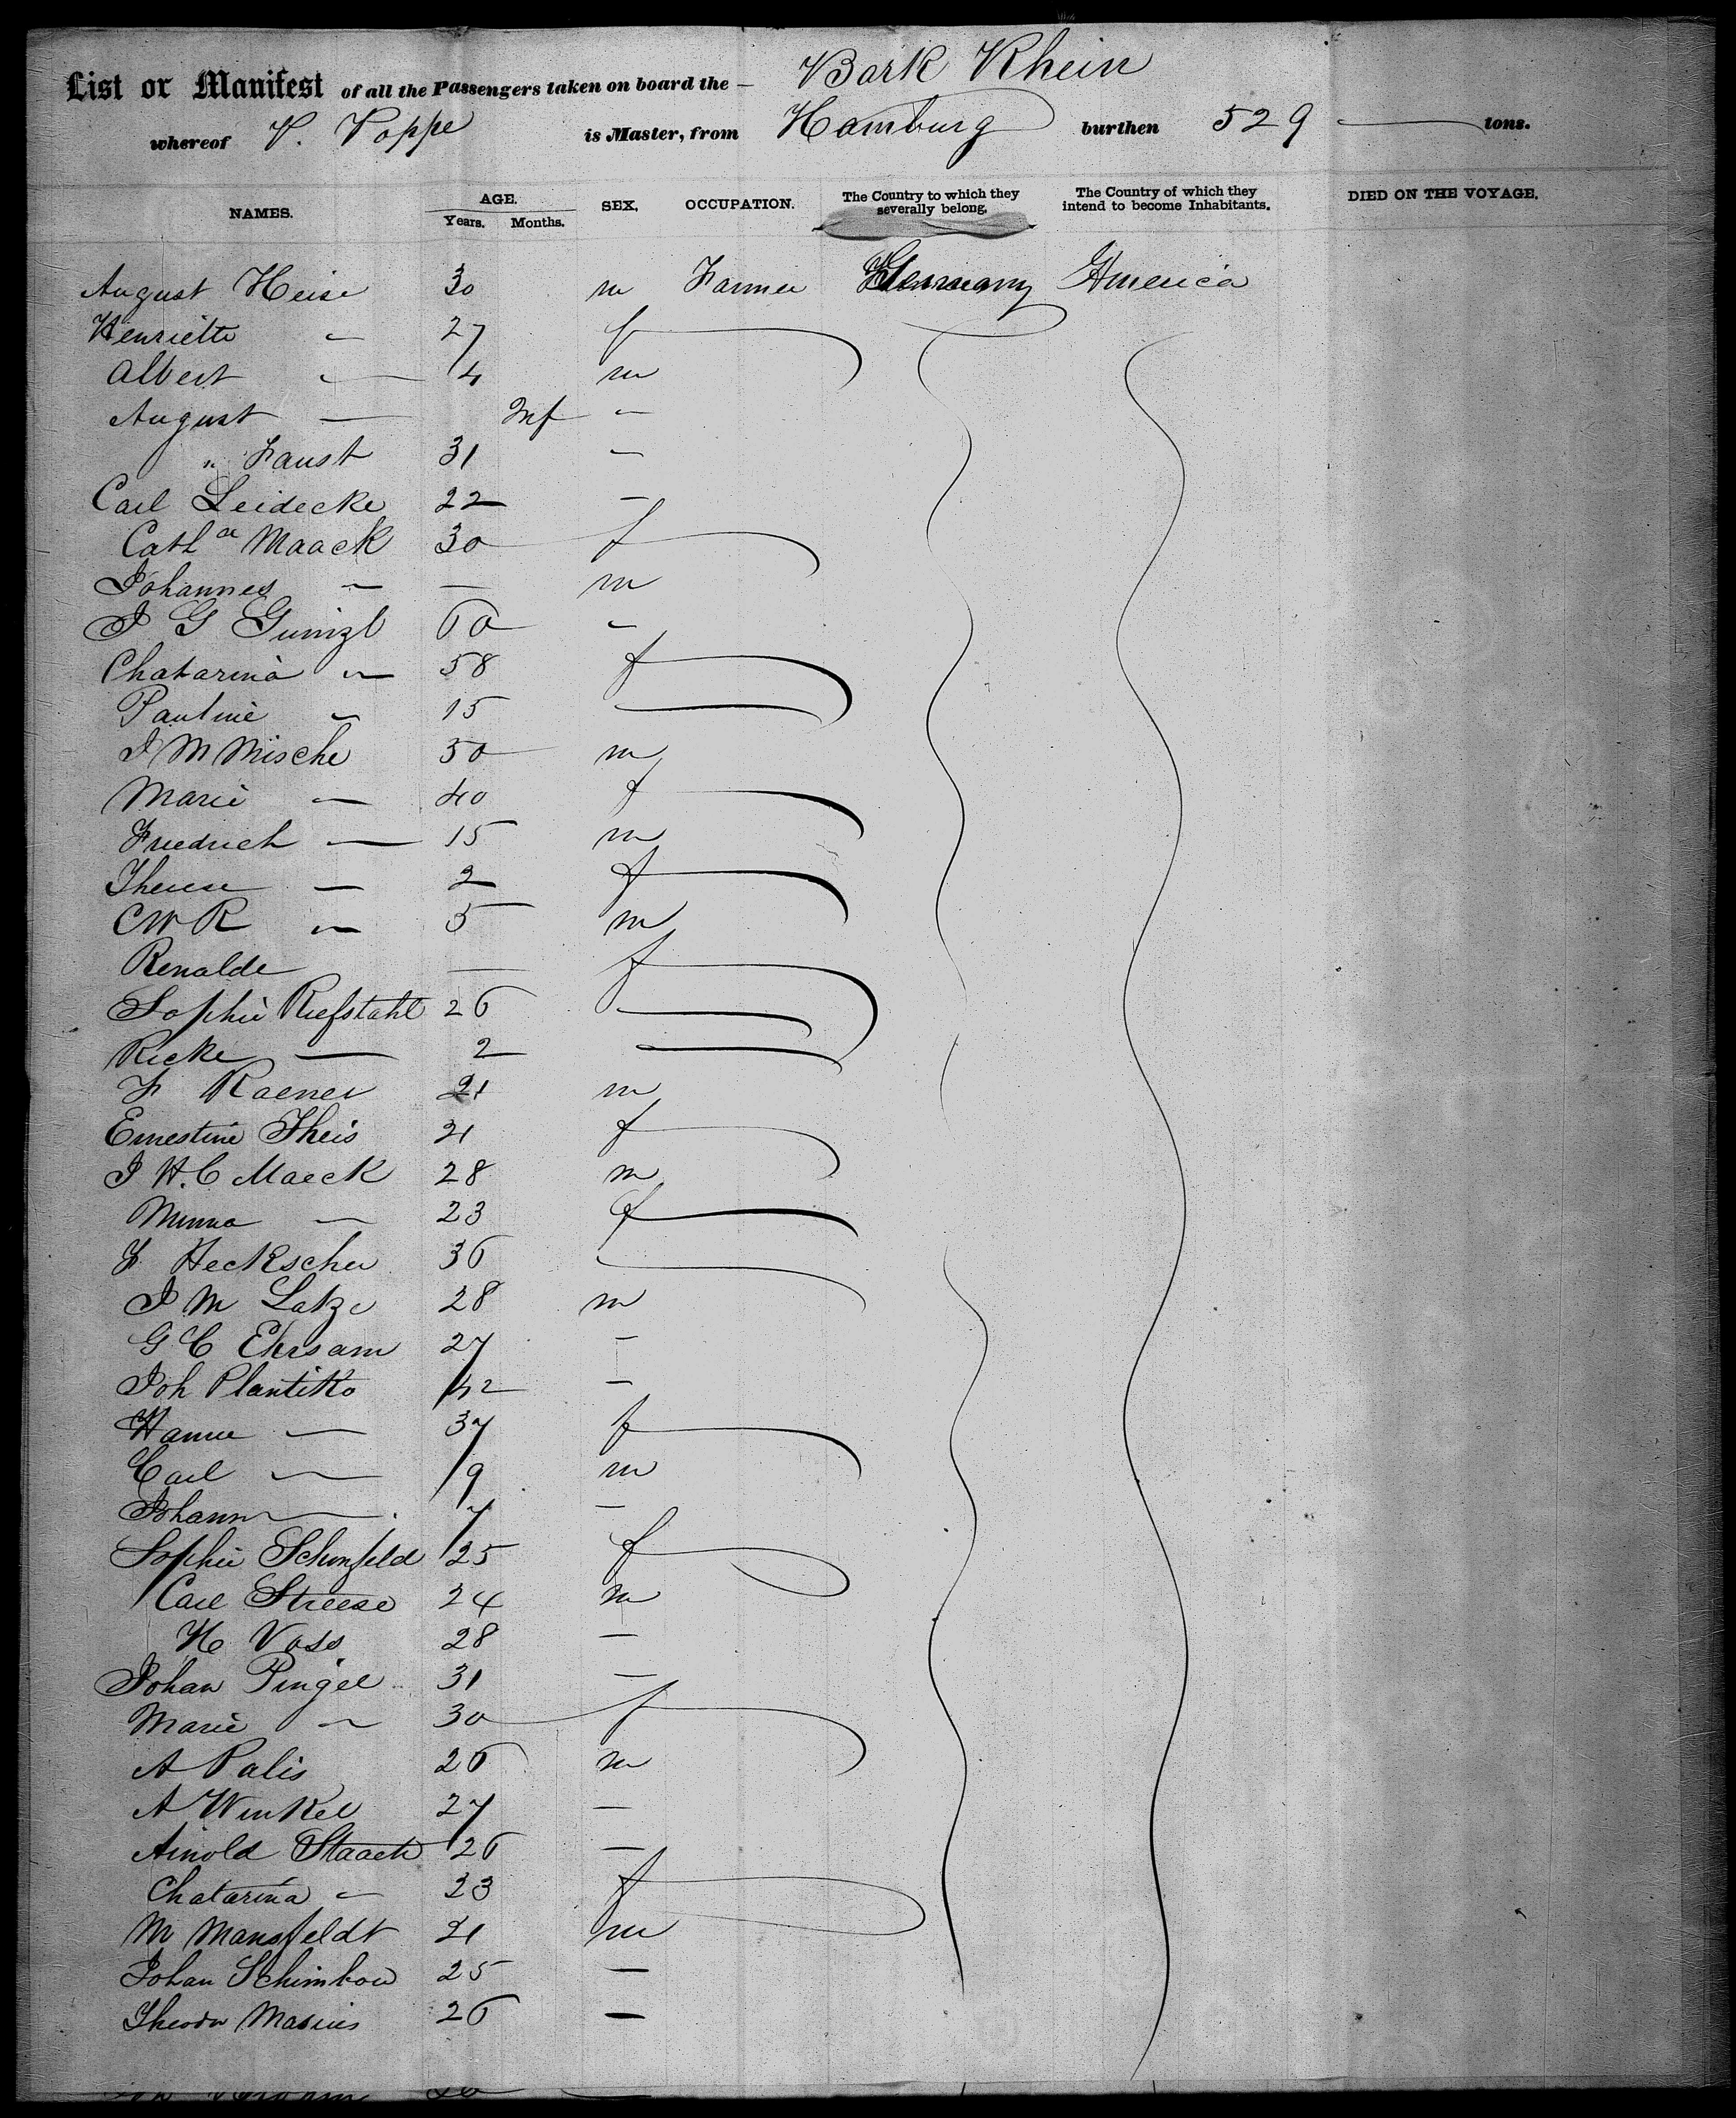 List or Manifest of all the Passengers taken on board the — Bark Rhein
whereof P. Poppe is Master, from Hamburg burthen 529 — tons.
NAMES. AGE. Years. Months. SEX, OCCUPATION. The Country to which they severally belong. The Country of which they intend to become Inhabitants. DIED ON THE VOYAGE.
August Heise 30 m Farmer Germany America
Henriette — 27 f
Albert — 4 m
August — Inf —
" Faust 31 —
Carl Leidecke 22 —
Cath a Maack 30 f
Johannes — — m
J G 60 —
Chatarina — 58 f
Pauline — 15
J M Mische 50 m
Marie — 40 f
Friedrich — 15 m
Therese — 2 f
C W R — 5 m
Renalde — f
Sophie Riefstahl 26
Ricke — 2
F Raener 21 m
Ernestine Theis 21 f
J H. C Maeck 28 m
Minna — 23 f
F Heckscher 36
J M Latze 28 m
G C Ehrsam 27 —
Joh Plantiko 42 —
Hanne — 37 f
Carl — 9 m
Johann — 7 —
Sophie Schonfeld 25 f
Carl Streese 24 m
H Voss 28 —
Johan Pingel 31 —
Marie — 30 f
A Palis 26 m
A Winkel 27 —
Arnold Staack 26 —
Chatarina — 23 f
M Mansfeldt 21 m
Johan Schimkow 25 —
Theodor Marius 26 —